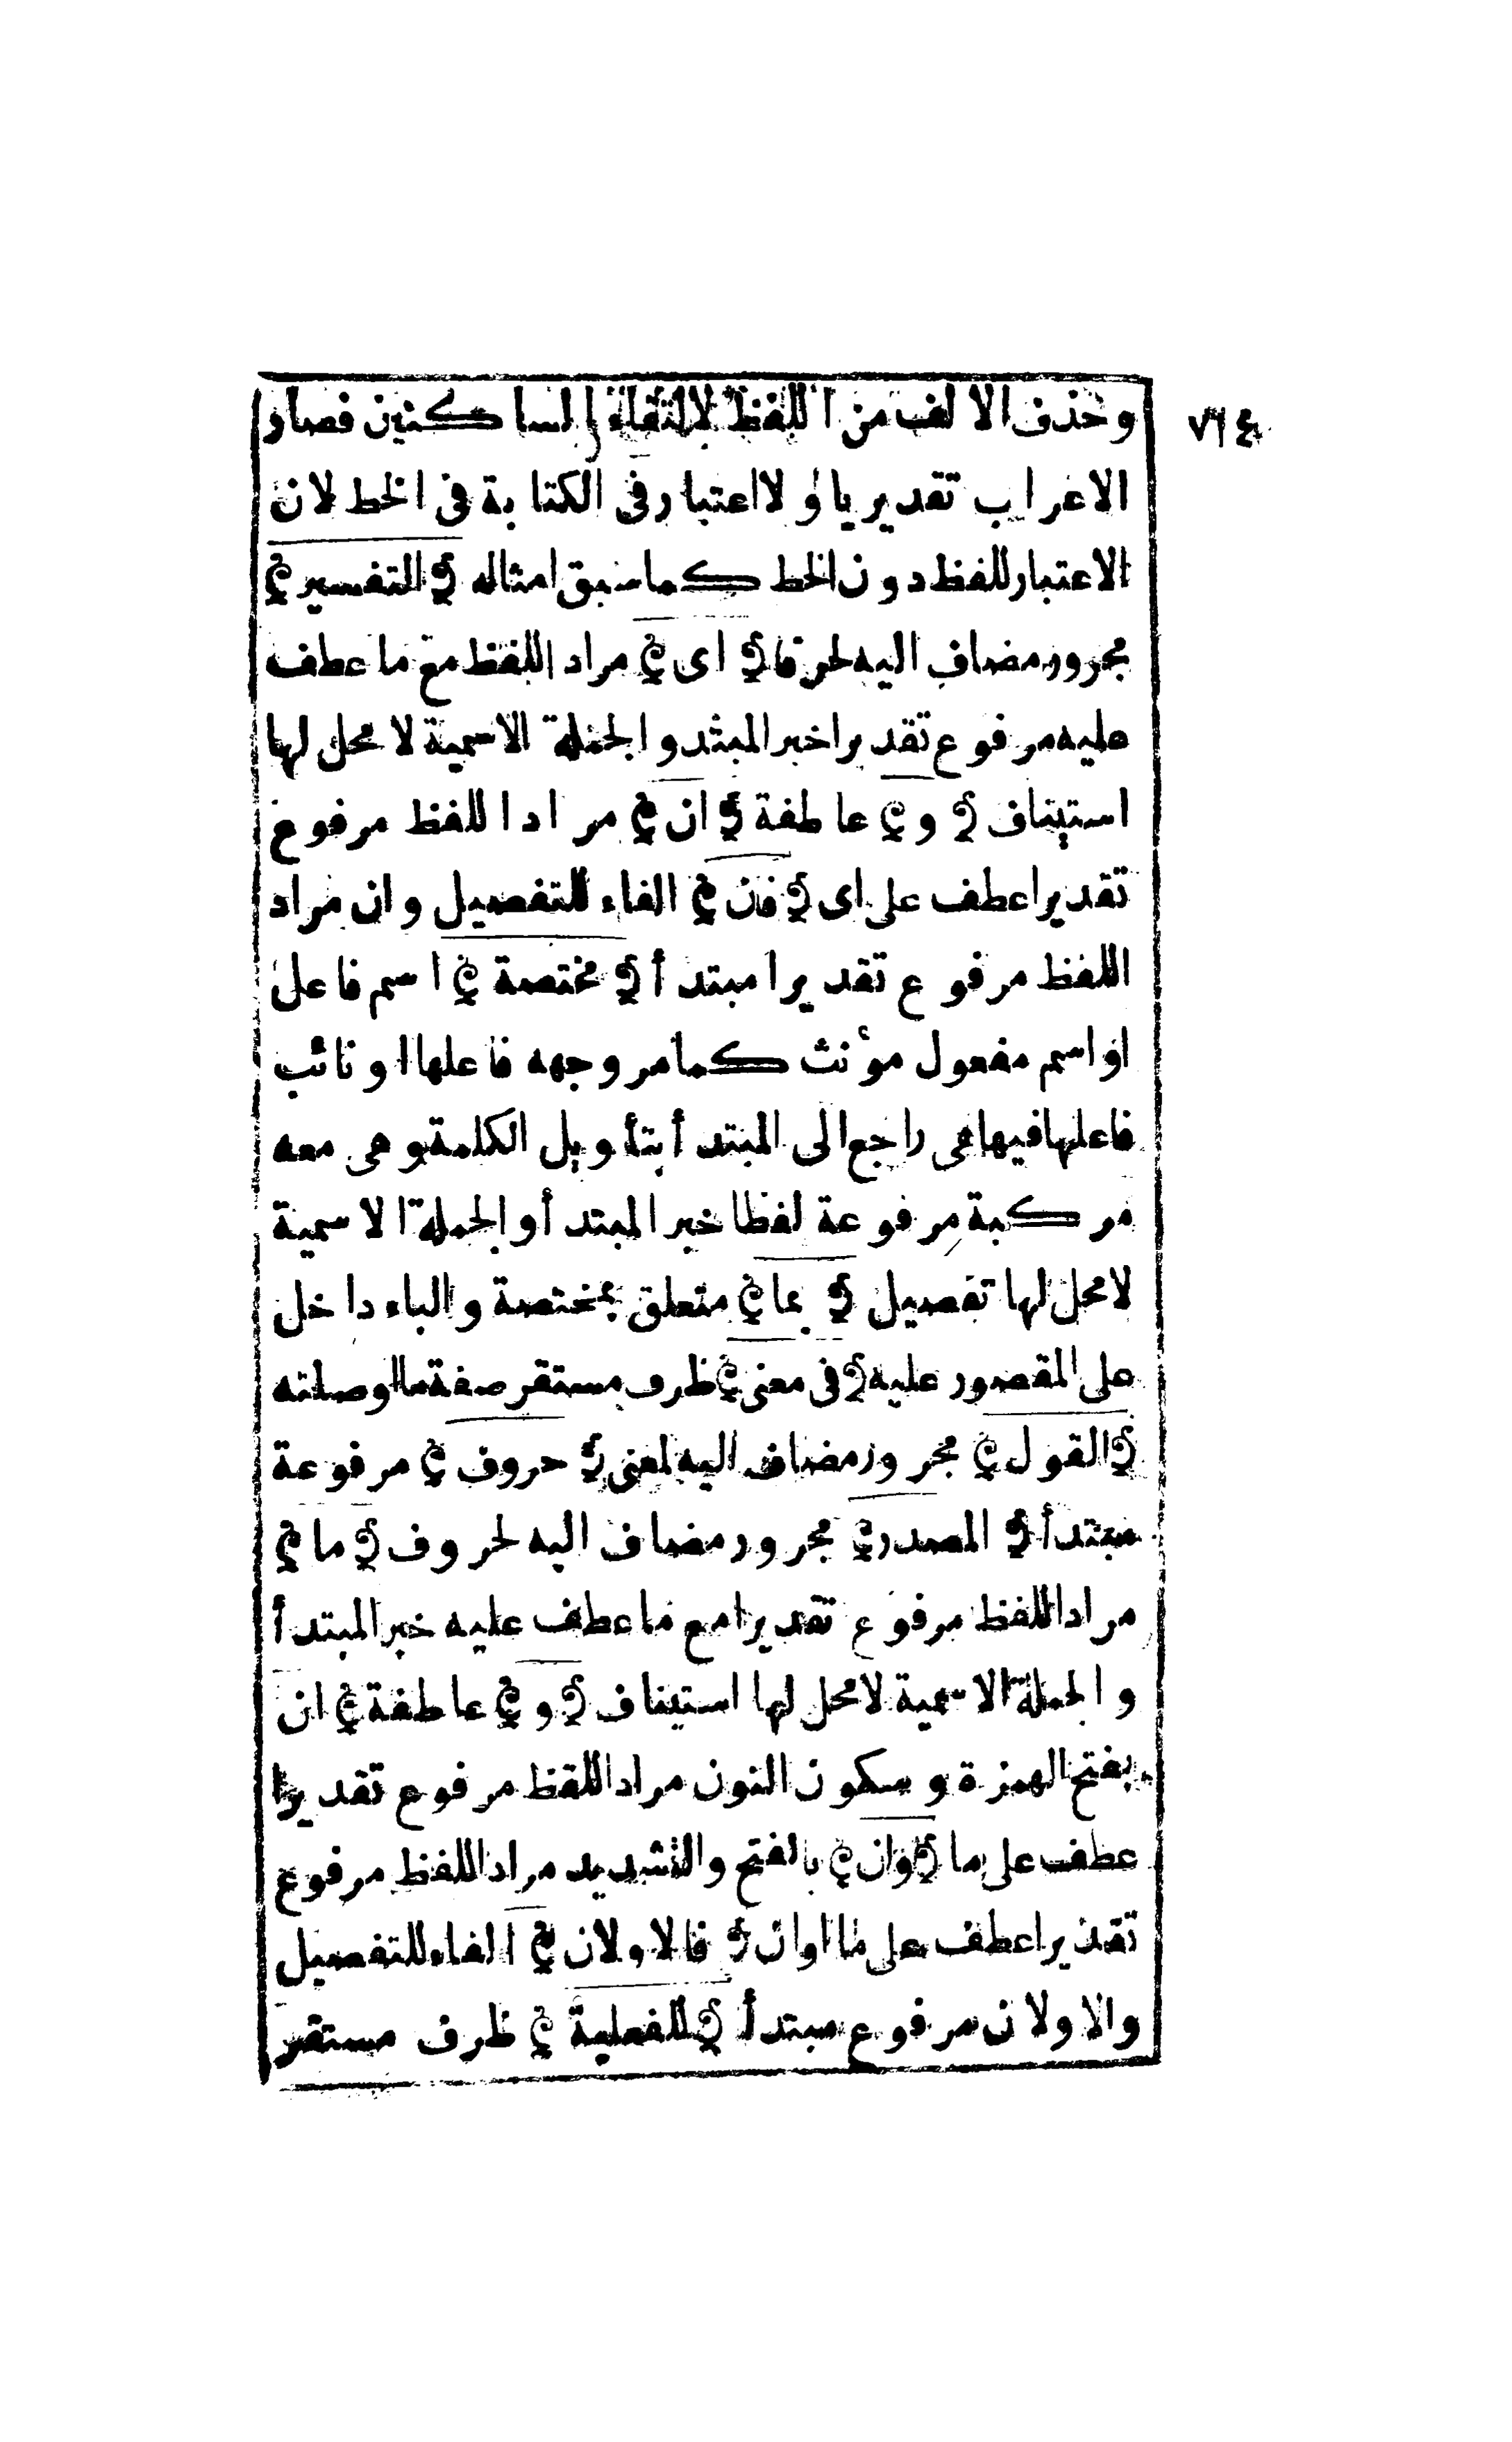 ٧٦٤
وحذف الالف من اللفظ لالتقاء الساكنين فصار
الاعراب تقديريا ولا اعتبار فى الكتابة فى الخط لان
الاعتبار للفظ دون الخط كما سبق امثاله ﴿ التفسير ﴾
مجرور مضاف اليه لحرفا ﴿ اى ﴾ مراد اللفظ مع ما عطف
عليه مرفوع تقديرا خبر المبتدو الجملة الاسمية لا محل لها
استيناف ﴿ و ﴾ عاطفة ﴿ ان ﴾ مراد اللفظ مرفوع
تقديرا عطف على اى ﴿ فان ﴾ الفاء للتفصيل وان مراد
اللفظ مرفوع تقديرا مبتدأ ﴿ مختصة ﴾ اسم فاعل
او اسم مفعول مؤنث كما مر وجهه فاعلها او نائب
فاعلها فيها هى راجع الى المبتدأ بتأويل الكلمة وهى معه
مركبة مرفوعة لفظا خبر المبتدأ والجملة الاسمية
لا محل لها تفصيل ﴿ بما ﴾ متعلق بمختصة والباء داخل
على المقصور عليه ﴿ فى معنى ﴾ ظرف مستقر صفة ما او صلته
﴿ القول ﴾ مجرور مضاف اليه لمعنى ﴿ حروف ﴾ مرفوعة
مبتدأ ﴿ المصدر ﴾ مجرور مضاف اليه لحروف ﴿ ما ﴾
مراد اللفظ مرفوع تقديرا مع ما عطف عليه خبر المبتدأ
والجملة الاسمية لا محل لها استيناف ﴿ و ﴾ عاطفة ﴾ ان
بفتح الهمزة وسكون النون مراد اللفظ مرفوع تقديرا
عطف على ما ﴿ وان ﴾ بالفتح والتشديد مراد اللفظ مرفوع
تقديرا عطف على ما او ان ﴿ فالاولان ﴾ الفاء للتفصيل
والاولان مرفوع مبتدأ ﴿ للفعلية ﴾ ظرف مستقر